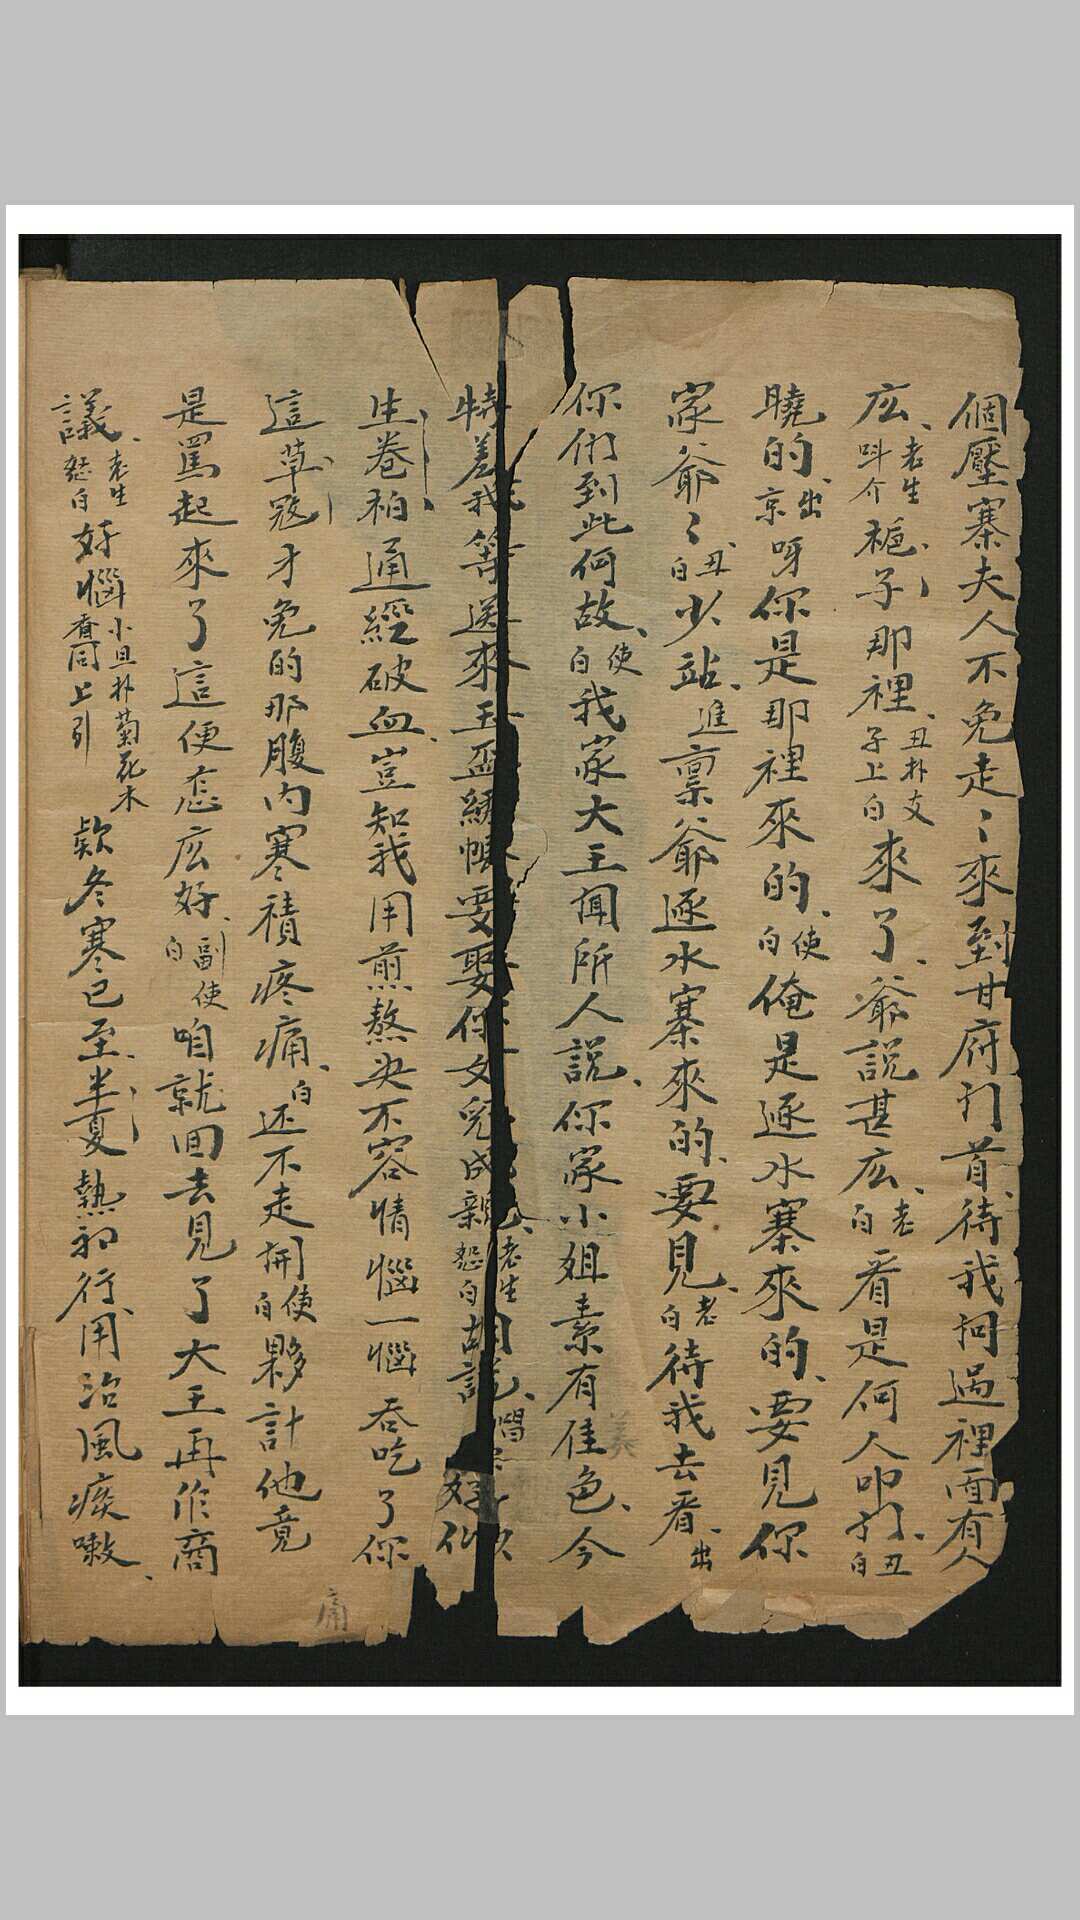 個壓寨夫人不免走〻來到甘府门首待我问過裡面有人
庅老生呌介栀子那裡丑扑支子上白來了爺説甚庅老白看是何人叩打丑白
曉的出京呀你是那裡來的使白俺是逐水寨來的要見你
家爺〻丑白少站進禀爺逐水寨來的要見老白待我去看出
你们到此何故使白我家大王聞听人説你家小姐素有佳色今
特差我等送來玉盃綉帳要娶你女兒成親老生怒白胡説唱好
生卷柏通經破血豈知我用煎熬决不容情惱一惱吞吃了你
這草寇才免的那腹内寒積疼痛白还不走開使白夥計他竟
是罵起來了這便怎庅好副使白咱就回去見了大王再作商
議老生怒白好惱小旦扑菊花木香同上引欵冬寒已至半夏熱初行用治風痰嗽
痛